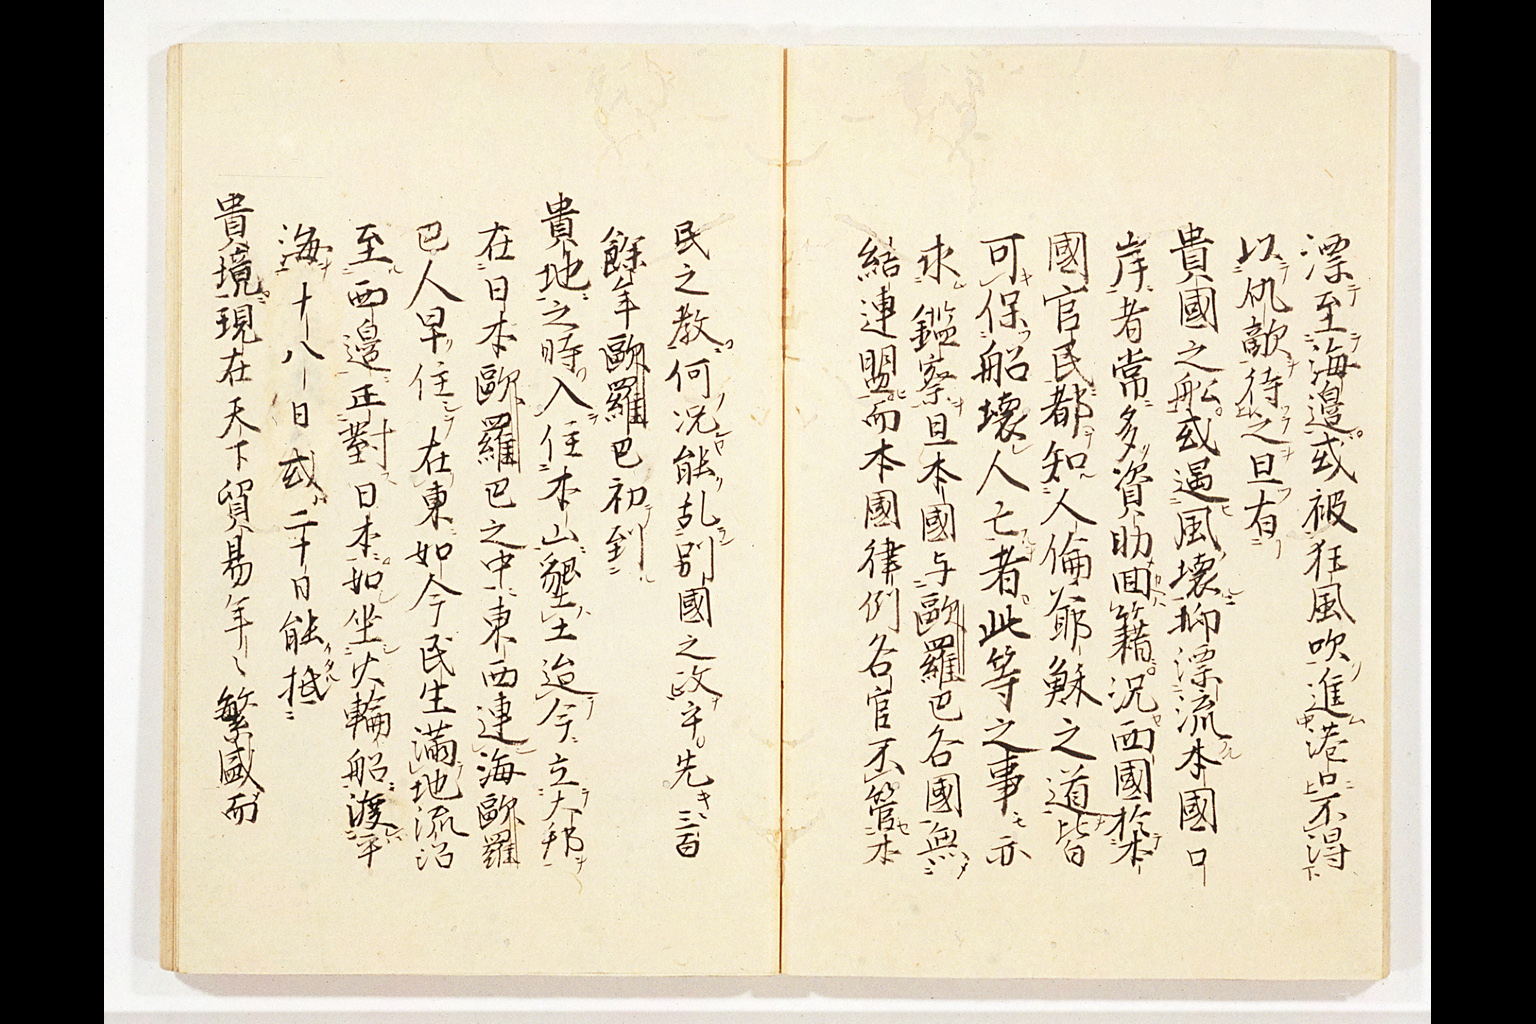 漂至海邉或被狂風吹進港口不得
以仇敵待之且有
貴國之船或遇風壊抑漂流本國口
岸者常多資助回籍况西國於本
國官民都知人倫爺穌之道皆
可保船壊人亡者此等之事亦
求鑑察且本國与歐羅巴各國無
結連盟而本國律例各官不管本
民之教何况能乱别國之政乎先三百
餘年歐羅巴初到
貴地之時入住本山墾土迨今立大邦
在日本歐羅巴之中東西連海歐羅
巴人早住在東如今民生滿地流沿
至西邉正對日本如坐火輪船渡平
海十八日或二十日能抵
貴境現在天下貿易年〻繁盛而